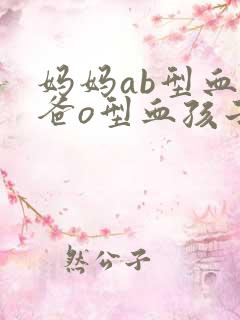 妈妈ab型血
爸o型血孩
然公子